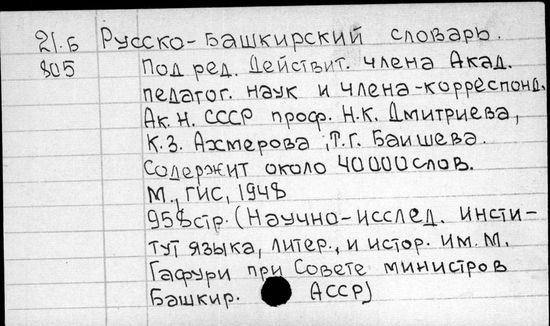 21.Б Русско-Башкирский словарь.
805 Под ред. Действит. члена Акад.
педагог. наук и члена-корреспонд.
Ак. Н. СССР проф. Н.К. Дмитриева,
К.З. Ахмерова, Т.Г. Баишева.
Содержит около 40000 слов.
М., ГИС, 1948
958стр. (Научно-исслед. инсти-
тут языка, литер., и истор. им. М.
Гафури при Совете министров
Башкир. АССР)